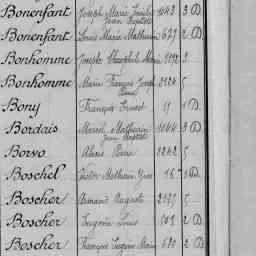 Bonenfant Joseph Marie Jean Baptiste 1043 3 D.
Bonenfant Louis Marie Mathurin 677 2 D.
Bonhomme Joseph
Bonhomme Marie François Joseph 2124 5
Bony François Ernest 11 1 D.
Bordais Marcel Mathurin Jean Baptiste 1044 3 D.
Borvo Alexis Pierre 2242 5
Boschel Victor Mathurin Yves 16
Boscher Armand Auguste 2125 5
Boscher Eugène Louis 2 D.
Boscher François Eugène Marie 680 2 D.